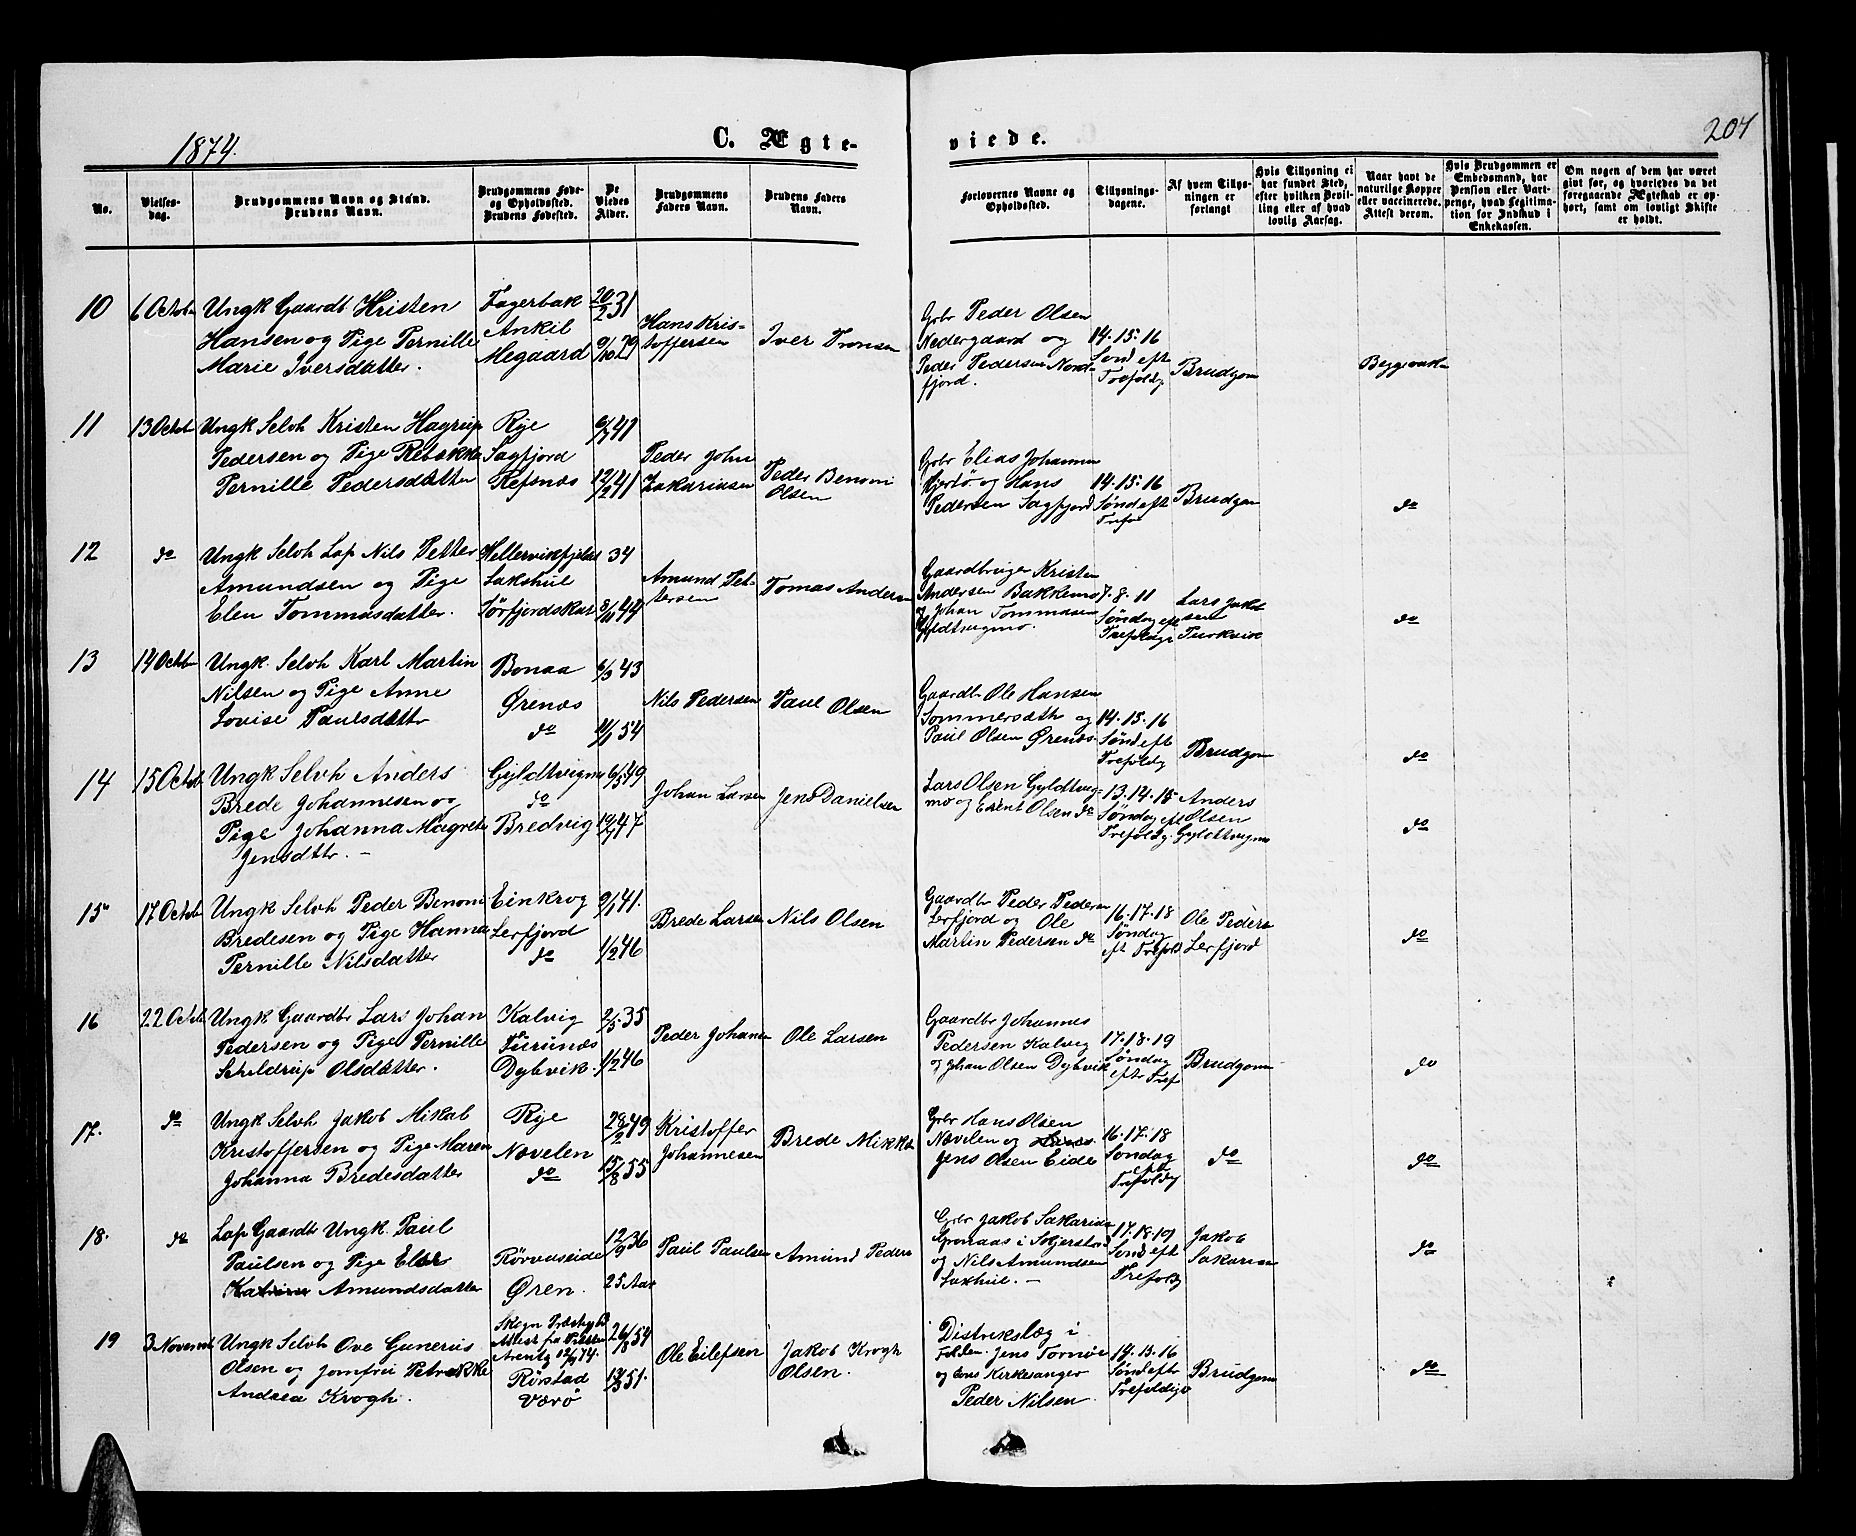 1874.
C. Ægte-
viede.
207
No.
Vielses-
dag.
Brudgommens Navn og Stand.
Brudens Navn.
Brudgommens Føde-
og Opholdssted.
Brudens Fødested.
De
Viedes
Alder.
Brudgommens
Faders Navn.
Brudens Faders
Navn.
Forlovernes Navne og
Opholdssted.
Tillysnings-
dagene.
Af hvem Tillys-
ningen er
forlangt
Hvis Tillysning ei
har fundet Sted,
efter hvilken Bevil-
ling eller af hvad
lovlig Aarsag.
Naar havt de
naturlige Kopper
eller vaccinerede.
Attest derom.
Hvis Brudgommen er
Embedsmand, har
Pension eller Vart-
penge, hvad Legitima-
tion for Indskud i
Enkekassen.
Om nogen af dem har været
gift før, og hvorledes da det
foregaaende Ægteskab er op-
hørt, samt om lovligt Skifte
er holdt.
10
6 Octob
Ungk Gaardb. Kristen
Hansen og Pige Pernille
Marie Iversdatter.
Fagerbak
Ankil
Megaard
20/2 31
9/10 29
Hans Kris-
toffersen
Iver Tronsen
Grbr Peder Olsen
Nedergaard og
Peder Pedersen Nord-
fjord.
14. 15. 16
Sønd eft
Trefoldg
Brudgom
Begge vak
11
13 Octob
Ungk Selvh Kristen Hagrup
Pedersen og Pige Rebekka
Pernille Pedersdatter
Rye
Sagfjord
Refsnæs
6/7 41
12/2 41
Peder John
Zakariasen
Peder Benoni
Olsen
Grbr Elias Johannes
Hjertø og Hans
Pedersen Sagfjord
14. 15. 16
Sønd eft
Trefo
Brudgom
do
12
do
Ungk Selvh Lap Nils Petter
Amundsen og Pige
Elen Tommasdatter.
Hellervikfjeldet
Lakshul
Sørfjordskar
34
8/11 44
Amund Pet-
tersen
Tomas Andersen
Gaardbruger Kristen
Andersen Bakkemo
og Johan Tommasen
Gyldtvigmo.
7. 8. 11
Søndag eft
Trefoldg
Lars Jakob
sen
do
13
14 Octob
Ungk. Selvh Karl Martin
Nilsen og Pige Anne
Lovise Paulsdattr
Bonaa
Ørenæs
do
6/3 43
11/11 54
Nils Pedersen
Paul Olsen
Gaardbr Ole Hansen
Sommersæth og
Paul Olsen Ørenæs.
14. 15. 16
Sønd eft
Trefoldg
Brudgom
do
14
15 Octob
Ungk Selvh Anders
Brede Johannesen og
Pige Johanna Magrete
Jensdttr. —
Gyldtvigmo
do
Bredvig
6/5 49
19/7 47
Johan Larsen
Jens Danielsen
Lars Olsen Gyldtvig-
mo og Ernt Olsen do
13. 14. 15
Søndag eft
Trefoldg.
Anders
Olsen
Gyldtvigmo
do
15
17 Octob
Ungk Selvh Peder Benoni
Bredesen og Pige Hanna
Pernille Nilsdatter
Einkrog
Lerfjord
do
9/1 41.
1/2 46
Brede Larsen
Nils Olsen
Gaardbr Peder Pedersen
Lerfjord og Ole
Martin Pedersen do
16. 17. 18
Søndag
eft Trefold
Ole Peders
Lerfjord
do
16
22 Octob
Ungk Gaardbr Lars Johan
Pedersen og Pige Pernille
Schildrup Olsdatter.
Kalvig
Furunæs
Dybvik.
2/5 35
1/2 46
Peder Johansen
Ole Larsen
Gaardbr Johannes
Pedersen Kalvig
og Johan Olsen Dybvik
17. 18. 19
Søndag
eftr Tref
Brudgom
do
17.
do
Ungk Selvh Jakob Mikal
Kristoffersen og Pige Maren
Johanna Bredesdatter
Rye
Nævelen
do
28/2 49
15/8 55
Kristoffer
Johannesen
Brede Mikkel
Grbr Hans Olsen
Nævelen og
Jens Olsen Eide
16. 17. 18
Søndag
eftr
Trefoldg
do
do
18.
do
Lap Gaardbr Ungk. Paul
Paulsen og Pige Elen
Katrine Amundsdatter
Rörvaseide
Øren.
12/9 36
25 Aar
Paul Paulsen
Amund Peders
Grbr Jakob Sakarias
Grønaas i Skjerstad
og Nils Amundsen
Lakhul. —
17. 18. 19
Sønd eft
Trefoldg
Jakob
Sakariasen
do
19
3 Novemb
Ungk Selvh Ove Gunerius
Olsen og Jomfru Petrikke
Andrea Krogh.
Attest fra
Rørstad
Værø
26/8 54
19/3 51.
Ole Eilefsen
Jakob Krogh
Olsen.
Distrikslæg i
Folden. Jens Tornøe
og Kirkesanger
Peder Nilsen
14. 15. 16
Sønd eftr
Trefoldigh
Brudgom
do